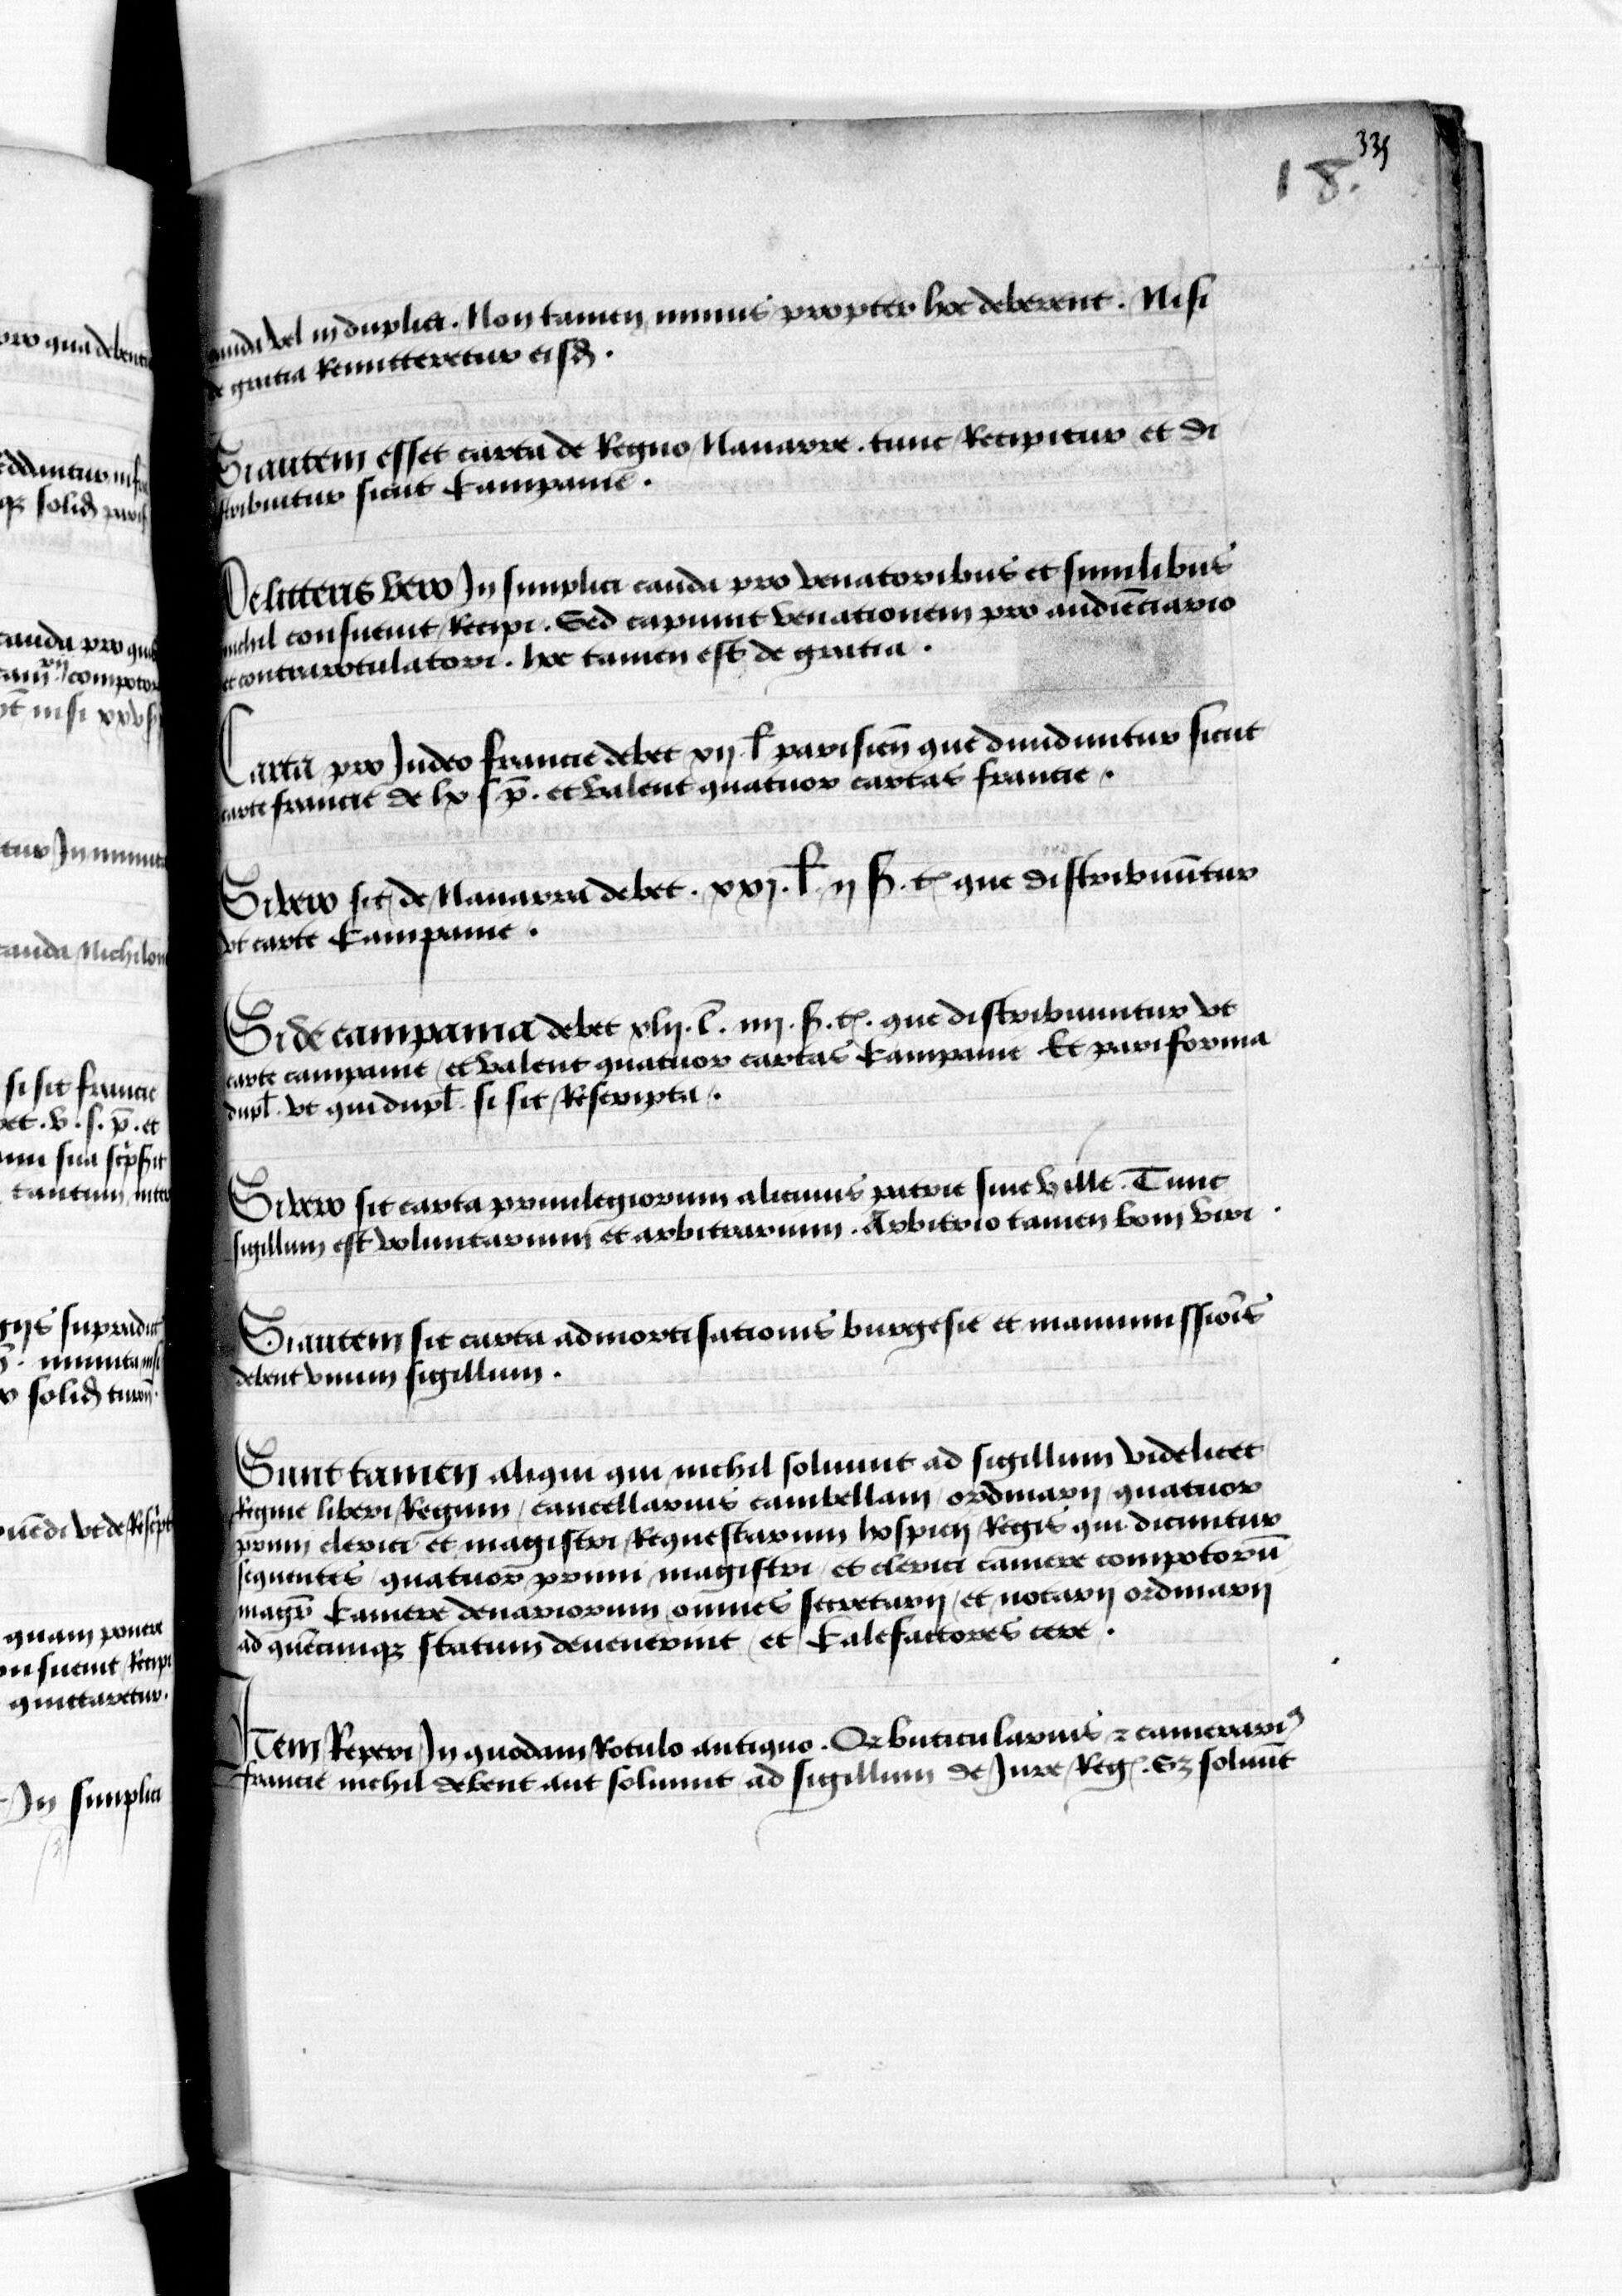 335
18.
cauda vel in duplici. Non tamen minus propter hoc deberent. Nisi
de gratia Remitteretur eisd̄.
Si autem esset carta de Regno Nauarre. tunc Recipitur et di
stribuitur sicut Kampanie.
De litteris vero In simplici cauda pro venatoribus et similibus
nichil consueuit Recipi. Sed capiunt venationem pro audiēciario
et contrarotulatori. hoc tamen est de gratia.
Carta pro Judeo francie debet xij. ł parisieñ que diuiduntur sicut
carte francie de lx s p̄. et valent quatuor cartas francie.
Si vero sit de Nauarra debet. xxj. ł. ij s̄. t. que distribuūtur
vt carte Kampanie.
Si de campania debet xlij. l̄. iiij. s̄. t. que distribuuntur vt
carte campanie et valent quatuor cartas Kampanie Et pari forma
dupł. vt qui dupł. si sit Rescripta.
Si vero sit carta priuilegiorum alicuius patrie siue ville. Tunc
sigillum est voluntarium et arbitrarium. Arbitrio tamen boni viri.
Si autem sit carta admortisationis burgesie et manumissiōis
debent vnum sigillum.
Sunt tamen aliqui qui nichil soluunt ad sigillum videlicet
Regine liberi Regum / cancellarius cambellani / ordinarij quatuor
primi clerici et magistri Requestarum hospicij Regis qui dicuntur
sequentes / quatuor primi magistri / et clerici camere compotorū
magr̄ Kamere denariorum omnes secretarij / et notarij ordinarij
ad quēcumqz statum deuenerint / et Kalefactores cere.
Item Reperi In quodam Rotulo antiquo. Qr buticularius & camerari9
francie nichil debent aut soluunt ad sigillum de Jure Reg. Sz soluūt
pro qua debent
solid paris
cauda pro
compotor
nisi xxv s
Jn minuta
cauda Nichilom
si sit francie
et. v. s. p̄. et
sua
tantum inter
supradict
minuta nisi
solid turon.
vt de Rescript
quam ponere
consueuit Recipi
quittaretur.
Jn simplici